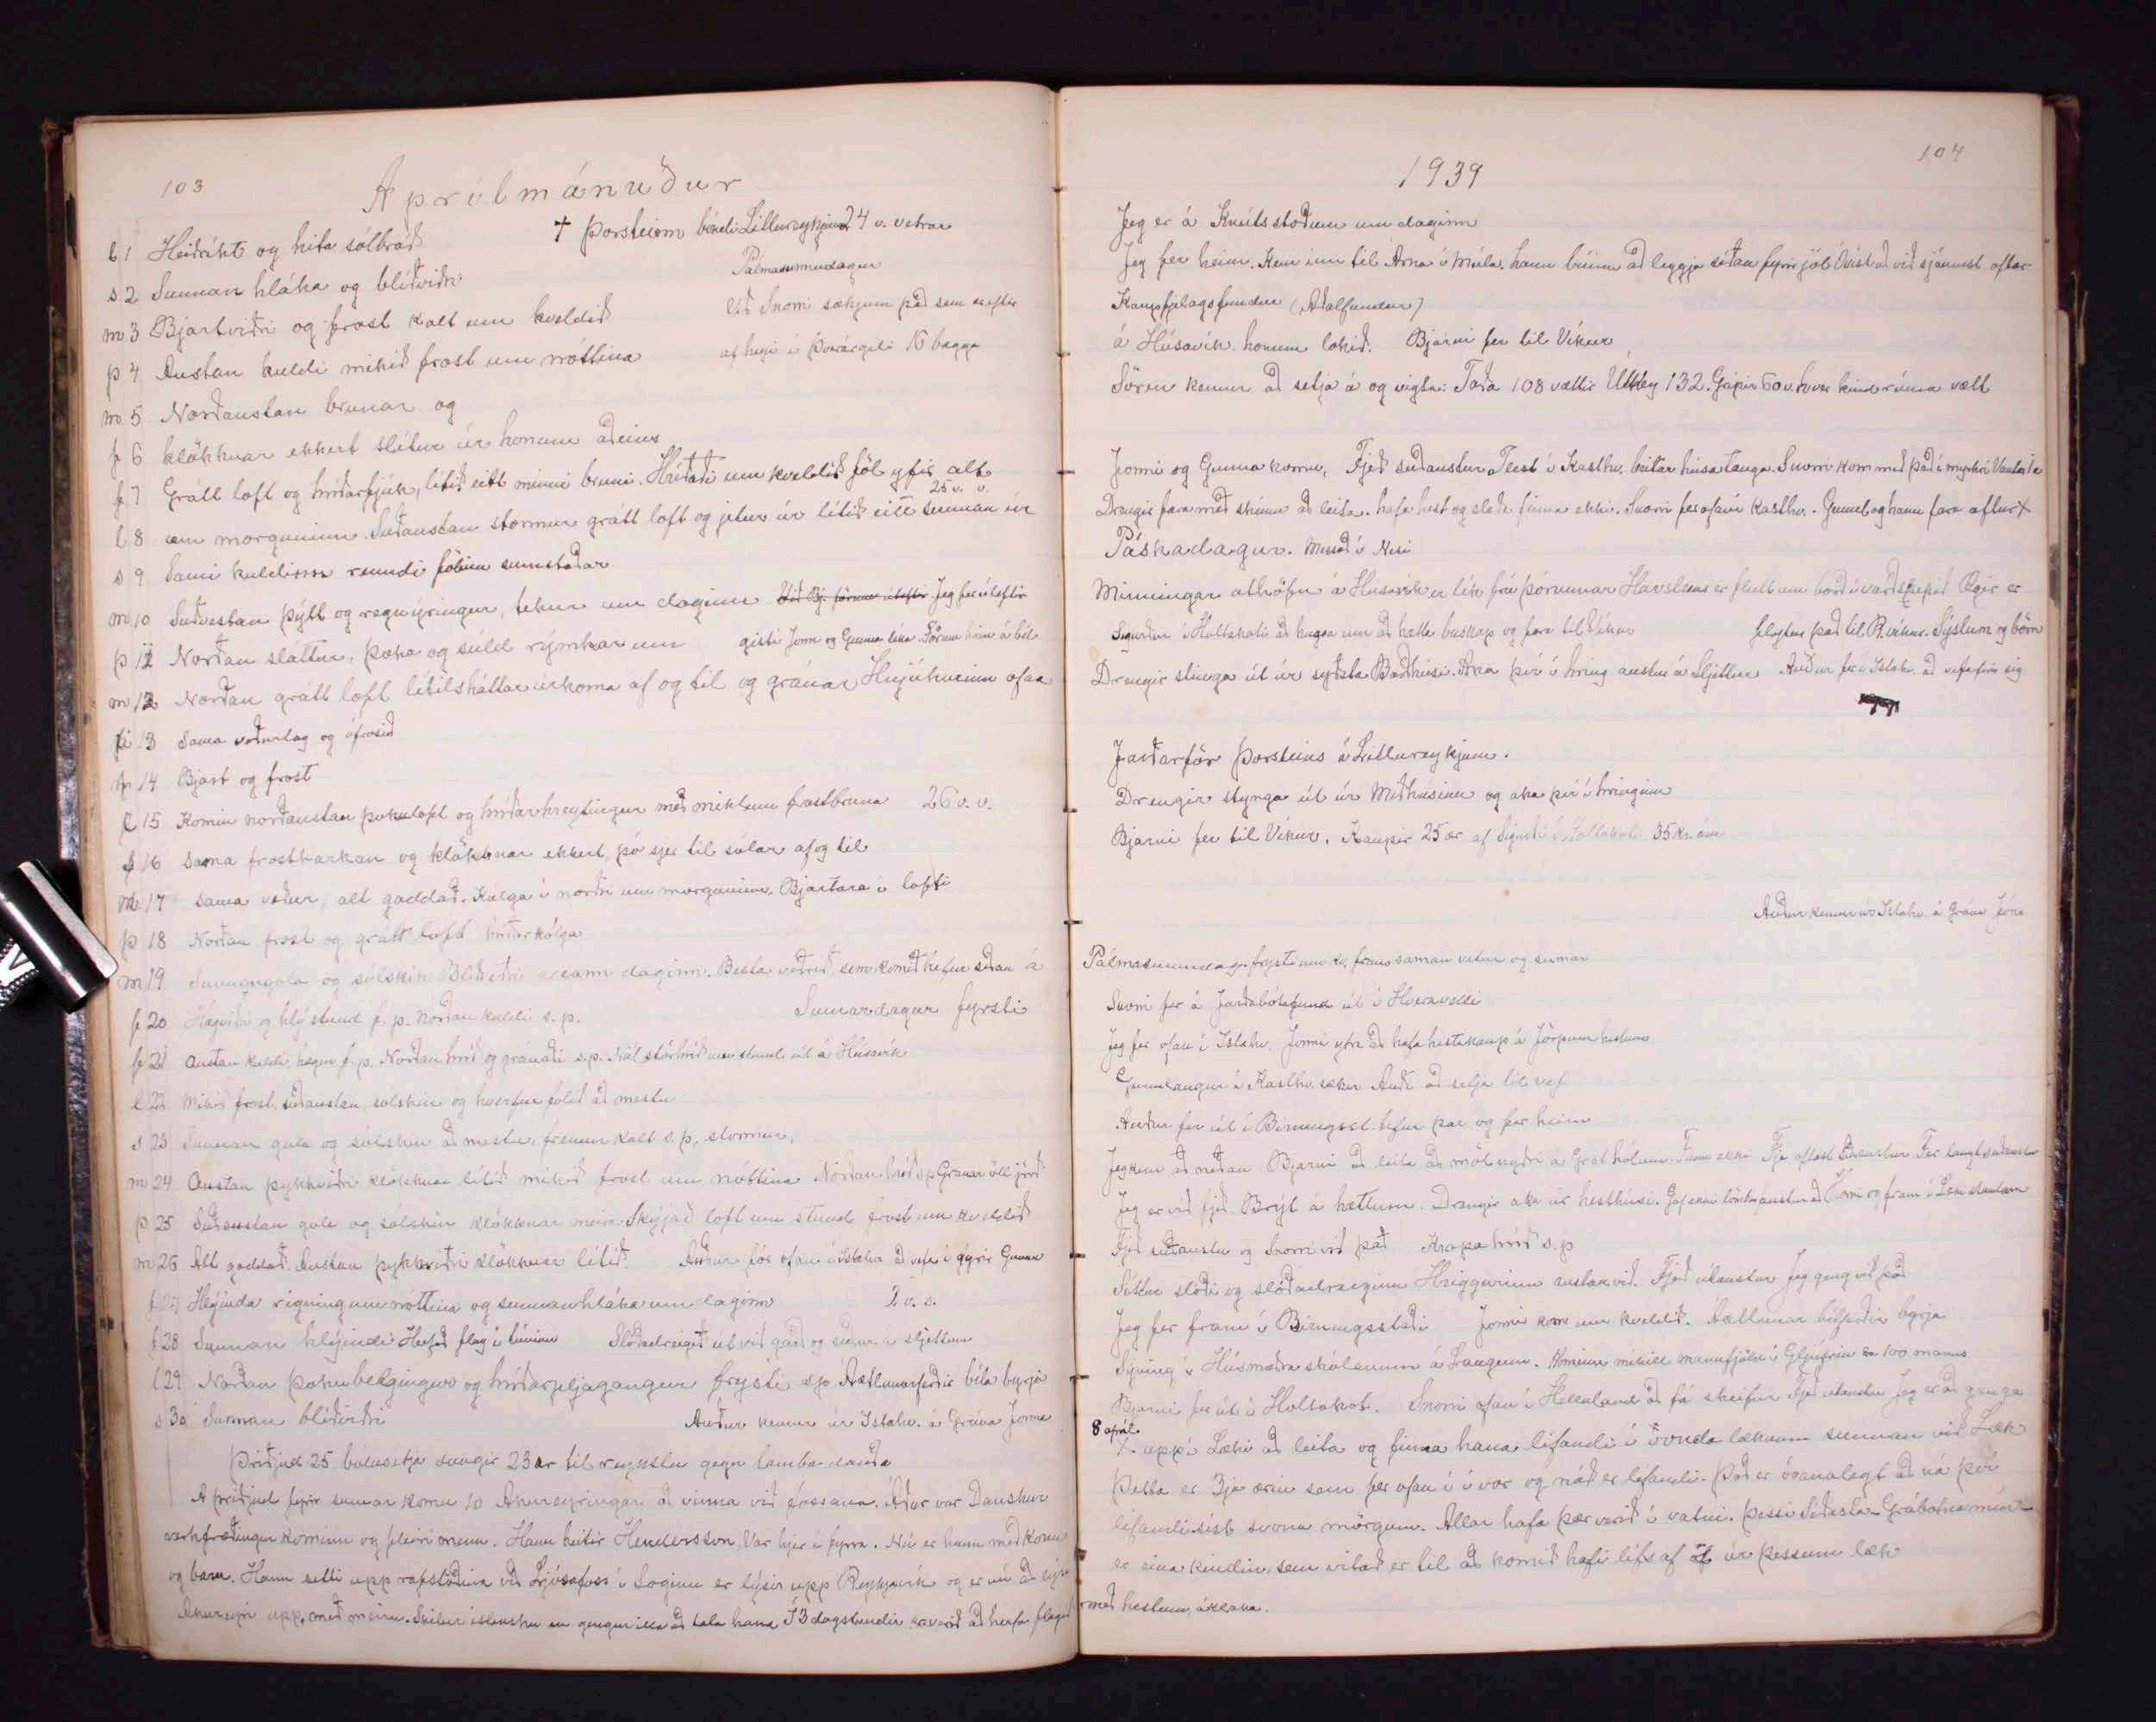 103
Aprílmánuður
✝ Þorsteinn bóndi Litlureykjum 24 v. vetrar
l 1 Heiðríkt og hita sólbráð
s 2 Sunnan hláka og blíðviðri Pálmasunnudagur
m 3 Bjartviðri og frost kalt um kveldið Við Snorri sækjum það sem er eftir
þ 4 Austan kuldi mikið frost um nóttina af heyi í Þverárgili 16 bagga
m 5 Norðaustan brunar og
f 6 klökknar ekkert slítur úr honum aðeins
f 7 Grátt loft og hríðarfjúk, lítið eitt minni bruni. Hríðaði um kveldið föl yfir alt
25 v. v.
l 8 um morguninn. Suðaustan stormur grátt loft og jetur úr lítið eitt sunnan úr
s 9 Sami kuldinn renndi fölinu sumstaðar
m 10 Suðvestan þýtt og regnýringur, tekur um daginn Við Bj. förum úteftir Jeg fer úteftir
þ 11 Norðan slattur, þoka og súld rýmkar um gisti Jomi og Gunna líka Förum heim á bíl
m 12 Norðan grátt loft lítilsháttar úrkoma af og til og gránar Hnjúkurinn ofan
fi 13 Sama veðurlag og ófrosið
fö 14 Bjart og frost
l 15 Komin norðaustan þokuloft og hríðarhreytingur með miklum frostbruna 26 v. v.
s 16 sama frostharkan og klökknar ekkert, þó sjer til sólar af og til
m 17 sama veður, alt gaddað. Kólga í norðri um morguninn. Bjartara í lofti
þ 18 Norðan frost og grátt loft hríðarkólga
m 19 Sunnangola og sólskin Blíðviðri allann daginn. Besta veðrið sem komið hefur síðan á
f 20 Hægviðri og hlý stund f.p. norðan kuldi s.p. Sumardagur fyrsti
f 21 Austan kuldi hægur f.p. Norðan hríð og gránaði s.p. Nál stórhríð um stund út á Húsavík
l 22 Mikið frost, suðaustan, sólskin og hverfur fölið að mestu
s 23 Sunnan gola og sólskin að mestu, fremur kalt s.p. stormur.
m 24 Austan þykkviðri klökknar lítið mikið frost um nóttina Norðan hríð s.p. Gránar öll jörð
þ 25 Suðaustan gola og sólskin klökknar meira Skýjað loft um stund frost um kveldið
m 26 Alt gaddað. Austan þykkviðri klökknar lítið. Auður fór ofan í Ístahv að vefa fyrir Gunnu
f 27 Hlýinda rigning um nóttina og sunnan hláka um daginn 2 v. s.
f 28 Sunnan hlýindi Herfað flag í túninu Slóðadreigið út við garð og suður á sljettum
l 29 Norðan þokubelgingur og hríðarjeljagangur frysti s.p. Áætlunarferðir bíla byrja
s 30 Sunnan blíðviðri Auður kemur úr Ístahv. á Grána Joma
Þriðjud 25 bólusetja drengir 23 ær til reynslu gegn lambadauða
Á þriðjud fyrir sumar komu 10 Akureyringar að vinna við fossana. Áður var Danskur
verkfræðingur kominn og fleiri menn. Hann heitir Hendersson, Var hjer í fyrra. Nú er hann með konu
og barn. Hann setti upp rafstöðina við Ljósafoss í Soginu er lýsir upp Reykjavík og er nú að lýsa
Akureyri upp, með meiru. Skilur íslensku en gengur illa að tala hana Í 3 dagstundir er verið að herfa flagið
104
1939
Jeg er á Knútsstöðum um daginn
Jeg fer heim. Kem inn til Árna í Múla, hann búinn að leggja síðan fyrir jól Óvíst að við sjáumst oftar
Kaupfjelagsfundur (Aðalfundur)
á Húsavík honum lokið. Bjarni fer til Víkur
Sören kemur að setja á og vigta: Taða 108 vættir Úthey 132. Gripir 60 v. hver kind rúma vætt
Jomi og Gunna komu, Fjeð suðaustur Flest í Kasthv. beitar húsa tanga. Snorri kom með það í myrkri Vantar 1 á
Drengir fara með skímu að leita. hafa hest og sleða finna ekki. Snorri fer ofaní Kasthv. Gunnl og hann fara aftur X
Páskadagur. Messað í Nesi
Minningar athöfn á Húsavík er lík frú Þórunnar Havsteens er flutt um borð í varðskipið Ægir er
Sigurður í Holtakoti að hugsa um að hætta búskap og fara til Víkur flytur það til R.víkur. Sýslum og börn
Drengir stinga út úr syðsta Barðhúsi. Aka því í hring austur á Sljettur Auður fer í Ístahv. að vefa fyrir sig
Jarðarför Þorsteins á Litlureykjum.
Drengir stynga út úr Miðhúsinu og aka því í hringinn
Bjarni fer til Víkur. Kaupir 25 ær af Sigurði í Holtakoti 35 kr. ána
Auður kemur úr Ístahv. á Grána Jóns
Pálmasunnudag. frysti um kv. fraus saman vetur og sumar
Snorri fer á Jarðabótafund út í Hveravelli
Jeg fer ofan í Ístahv. Jomi ytra að hafa hestakaup á Jörpum hestum
Gunnlaugur í Kasthv. sækir Auði að setja til vef
Auður fer út í Birningsst. tefur þar og fer heim
Jeg kem að neðan Bjarni að leita að mölnyðri á Grst hólum. Finna ekki Fje aflast Suðaustur Fer langt suðaustur
Jeg er við fjeð. Brýt á hættum. Drengir aka úr hesthúsi.
Fjeð suðaustur og Snorri við það Krapahríð s.p
Settur slóði og slóðadreginn Hryggurinn austan við. Fjeð utaustur Jeg geng við það
Jeg fer fram í Birningsstaði Jomi kom um kveldið. Áætlunar bílferðir byrja
Sýning í Húsmæðraskólanum á Laugum. Kominn mikill mannfjöldi í Gljúfrin ca 100 manns
Bjarni fer út í Holtakot. Snorri ofan í Helluland að fá skeifur Fjeð utaustur Jeg er að ganga
8 apríl
X- upp í Læki að leita og finna hana lifandi í vonda læknum sunnan við Læk
Þetta er 3ja ærin sem fer ofan í í vor og náð er lifandi. Það er óvanalegt að ná því
lifandi síst svona mörgum. Allar hafa þær verið í vatni. Þessi Síðasta-Grábotna mín-
er eina kindin, sem vitað er til að komið hafi lífs af úr þessum læk
með hestum, áklaka.